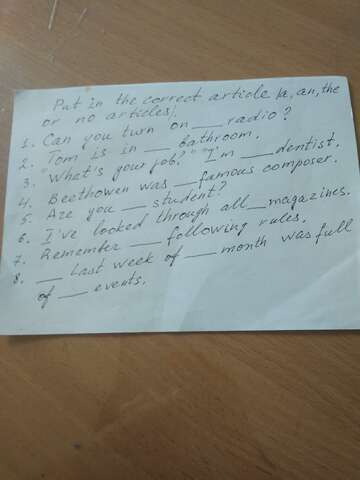 Put in the correct article /a, an, the
or no articles/.
1. Can you turn on __ radio?
2. Tom is in __ bathroom.
3. "What's your job?" "I'm __ dentist.
4. Beethowen was __ famous composer.
5. Are you __ student?
6. I've looked through all __ magazines.
7. Remember __ following rules.
8. __ Last week of __ month was full
of __ events.